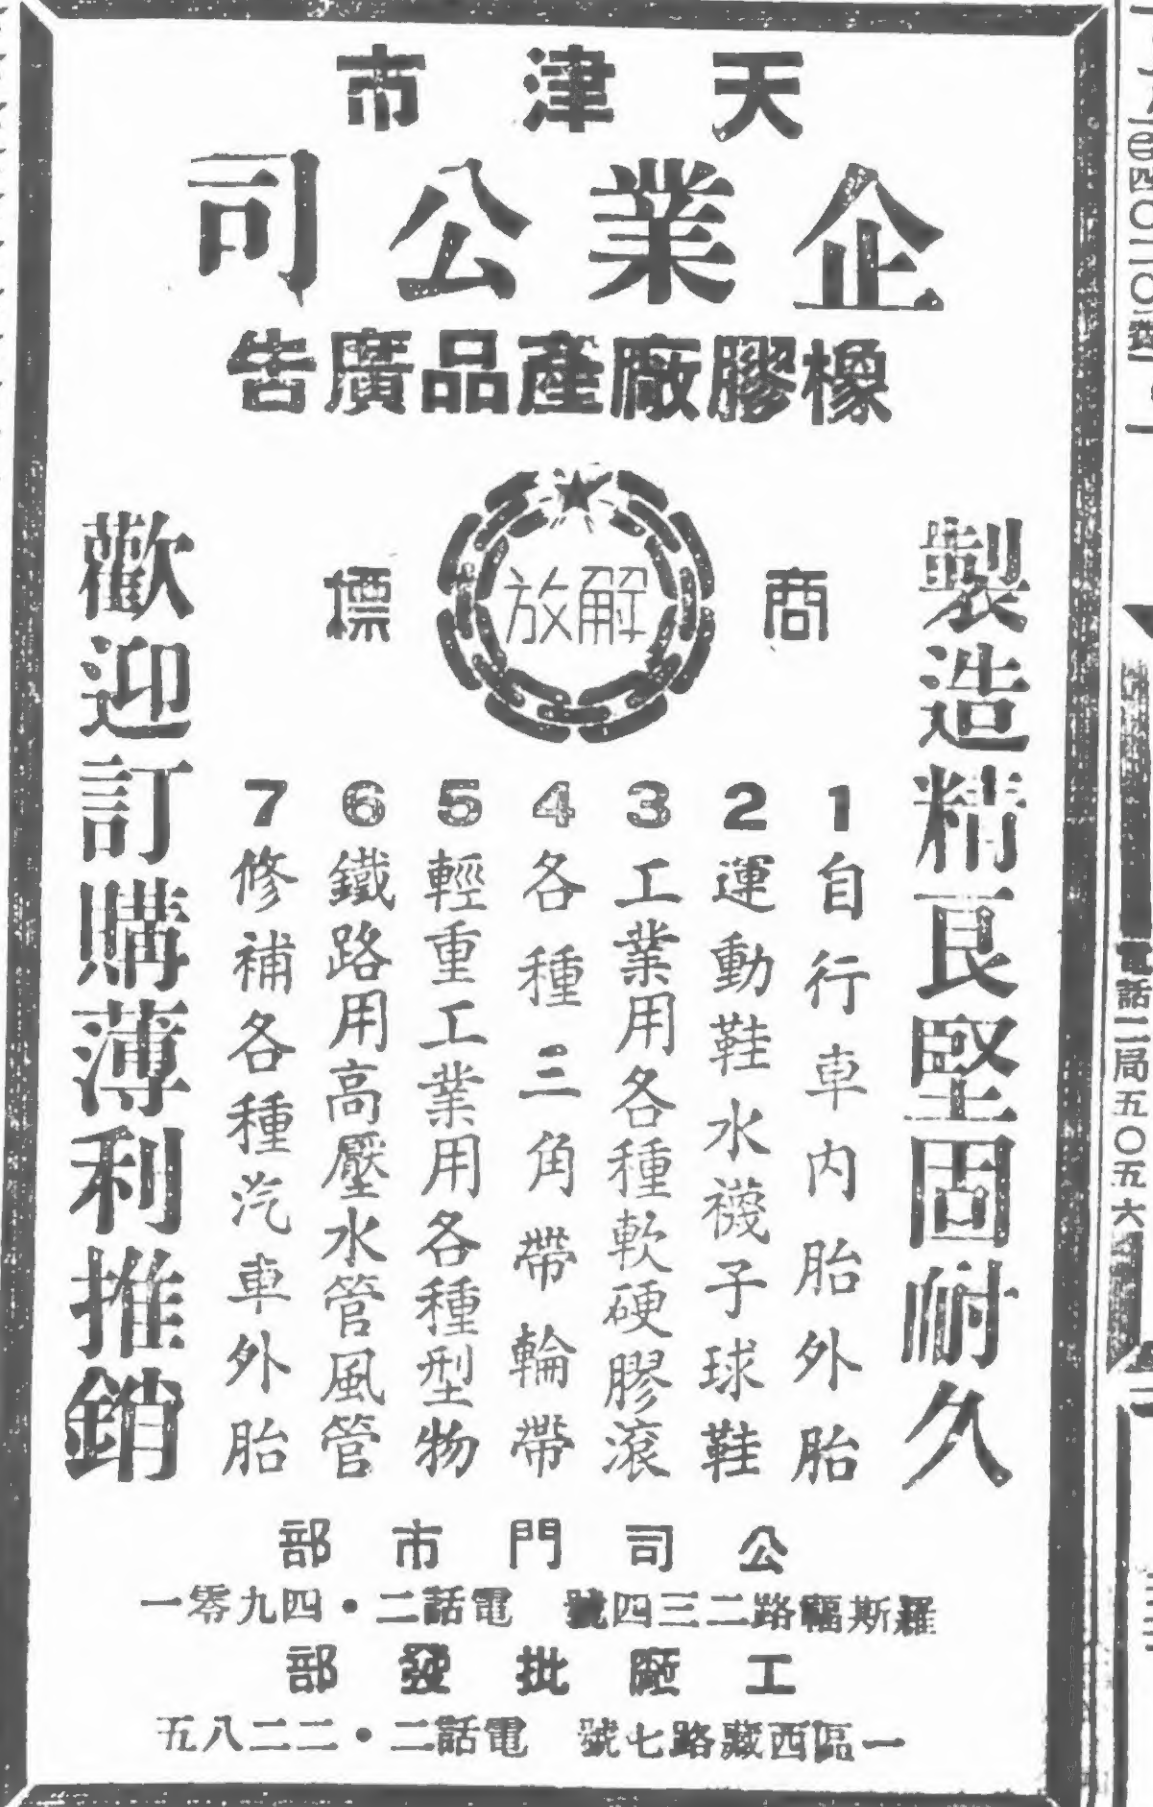 天津市
企業公司
橡膠廠產品廣告
商標
解放
製造精良堅固耐久
1自行車內胎外胎
2運動鞋水襪子球鞋
3工業用各種軟硬膠滾
4各種三角帶輪帶
5輕重工業用各種型物
6鐵路用高壓水管風管
7修補各種汽車外胎
歡迎訂購薄利推銷
公司門市部
羅斯福路二三四號 電話二・四九零一
工廠批發部
一區西藏路七號 電話二・二二八五
電話二局五〇五六